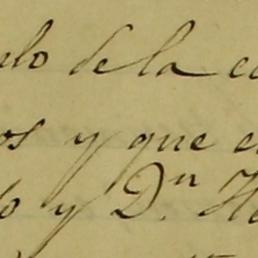 ulo de la ca
os y que e
lo y Dn H